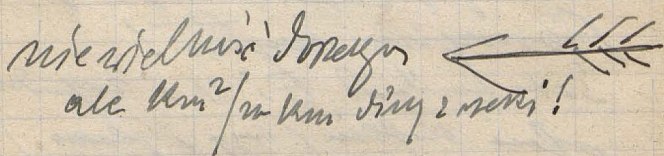 nie wielkość dorzecza
ale km²/na km dług rzeki!